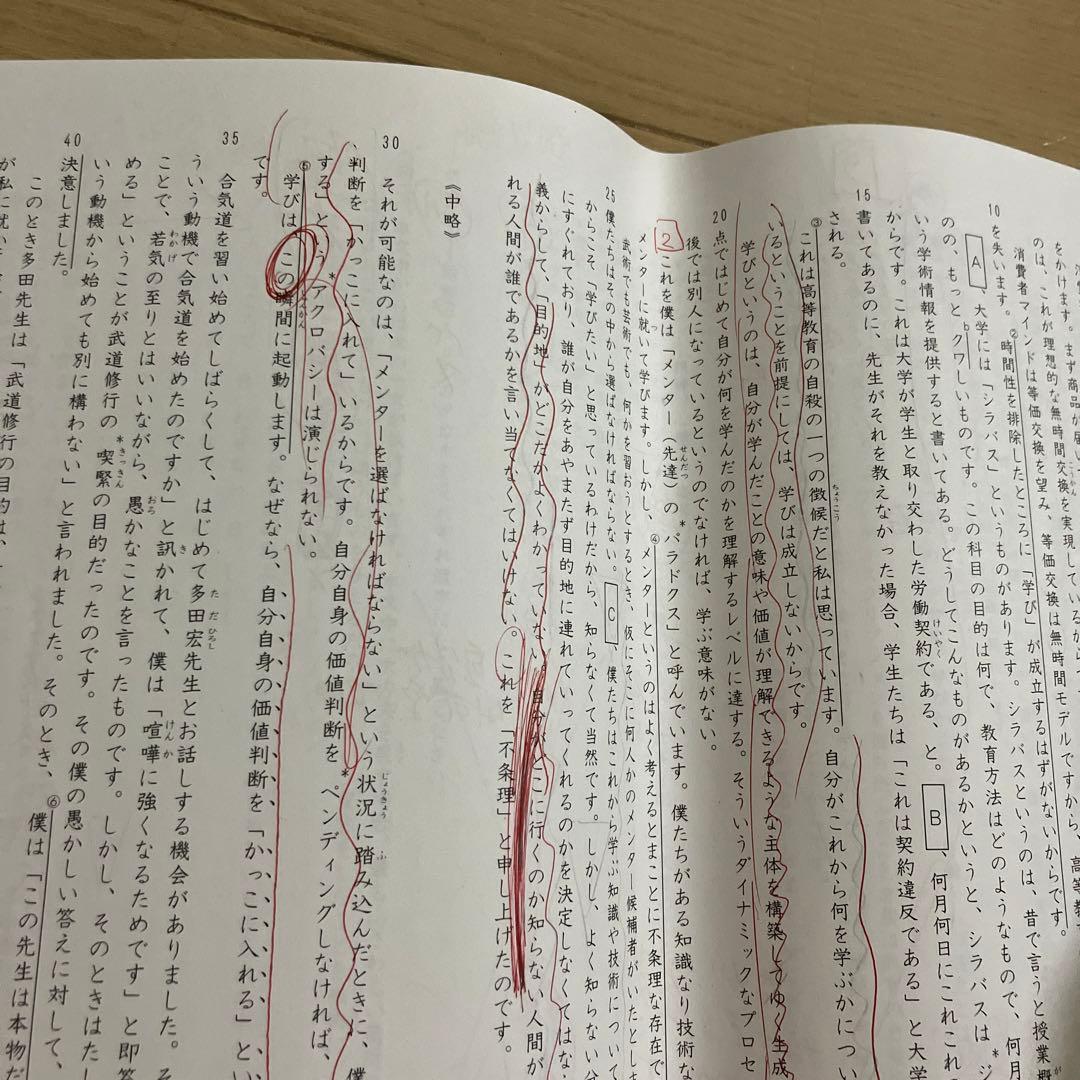 をかけます。まず商品が届い
のは、これが理想的な無時間交換を実現していますから、高等教
消費者マインドは等価交換を望み、等価交換は無時間モデルです。
10 を失います。②時間性を排除したところに「学び」が成立するはずがないからです。
A、大学には「シラバス」というものがあります。シラバスというのは、昔で言うと授業概
のの、もっとbクワしいものです。この科目の目的は何で、教育方法はどのようなもので、何月
いう学術情報を提供すると書いてある。どうしてこんなものがあるかというと、シラバスは*ジ
からです。これは大学が学生と取り交わした労働契約である、と。B、何月何日にこれこれ
15 書いてあるのに、先生がそれを教えなかった場合、学生たちは「これは契約違反である」と大学
される。
③これは高等教育の自殺の一つの徴候だと私は思っています。自分がこれから何を学ぶかについ
いるということを前提にしては、学びは成立しないからです。
学びというのは、自分が学んだことの意味や価値が理解できるような主体を構築してゆく生成
20 点ではじめて自分が何を学んだのかを理解するレベルに達する。そういうダイナミックなプロセ
後では別人になっているというのでなければ、学ぶ意味がない。
2 これを僕は「メンター(先達)の*パラドクス」と呼んでいます。僕たちがある知識なり技術な
メンターに就いて学びます。しかし、④メンターというのはよく考えるとまことに不条理な存在で
武術でも芸術でも、何かを習おうとするとき、仮にそこに何人かのメンター候補者がいたとしま
25 僕たちはその中から選ばなければならない。C、僕たちはこれから学ぶ知識や技術につい
からこそ「学びたい」と思っているわけだから、知らなくて当然です。しかし、よく知らない分
にすぐれており、誰が自分をあやまたず目的地に連れていってくれるのかを決定しなくてはな
義からして、「目的地」がどこだかよくわかっていない。自分がどこに行くのか知らない人間が
れる人間が誰であるかを言い当てなくてはいけない。これを「不条理」と申し上げたのです。
《中略》
30 それが可能なのは、「メンターを選ばなければならない」という状況に踏み込んだときに、僕
判断を「かっこに入れて」いるからです。自分自身の価値判断を*ペンディングしなければ、
する」という*アクロバシーは演じられない。
⑤学びはこの瞬間に起動します。なぜなら、自分自身の価値判断を「かっこに入れる」とい
です。
35 合気道を習い始めてしばらくして、はじめて多田宏先生とお話しする機会がありました。そ
ういう動機で合気道を始めたのですか」と訊かれて、僕は「喧嘩に強くなるためです」と即答
ことで、若気の至りとはいいながら、愚かなことを言ったものです。しかし、そのときはた
める」ということが武道修行の*喫緊の目的だったのです。その僕の愚かしい答えに対して、
いう動機から始めても別に構わない」と言われました。そのとき、⑥僕は「この先生は本物だ
40 決意しました。
このとき多田先生は「武道修行の目的は、
が私に就い